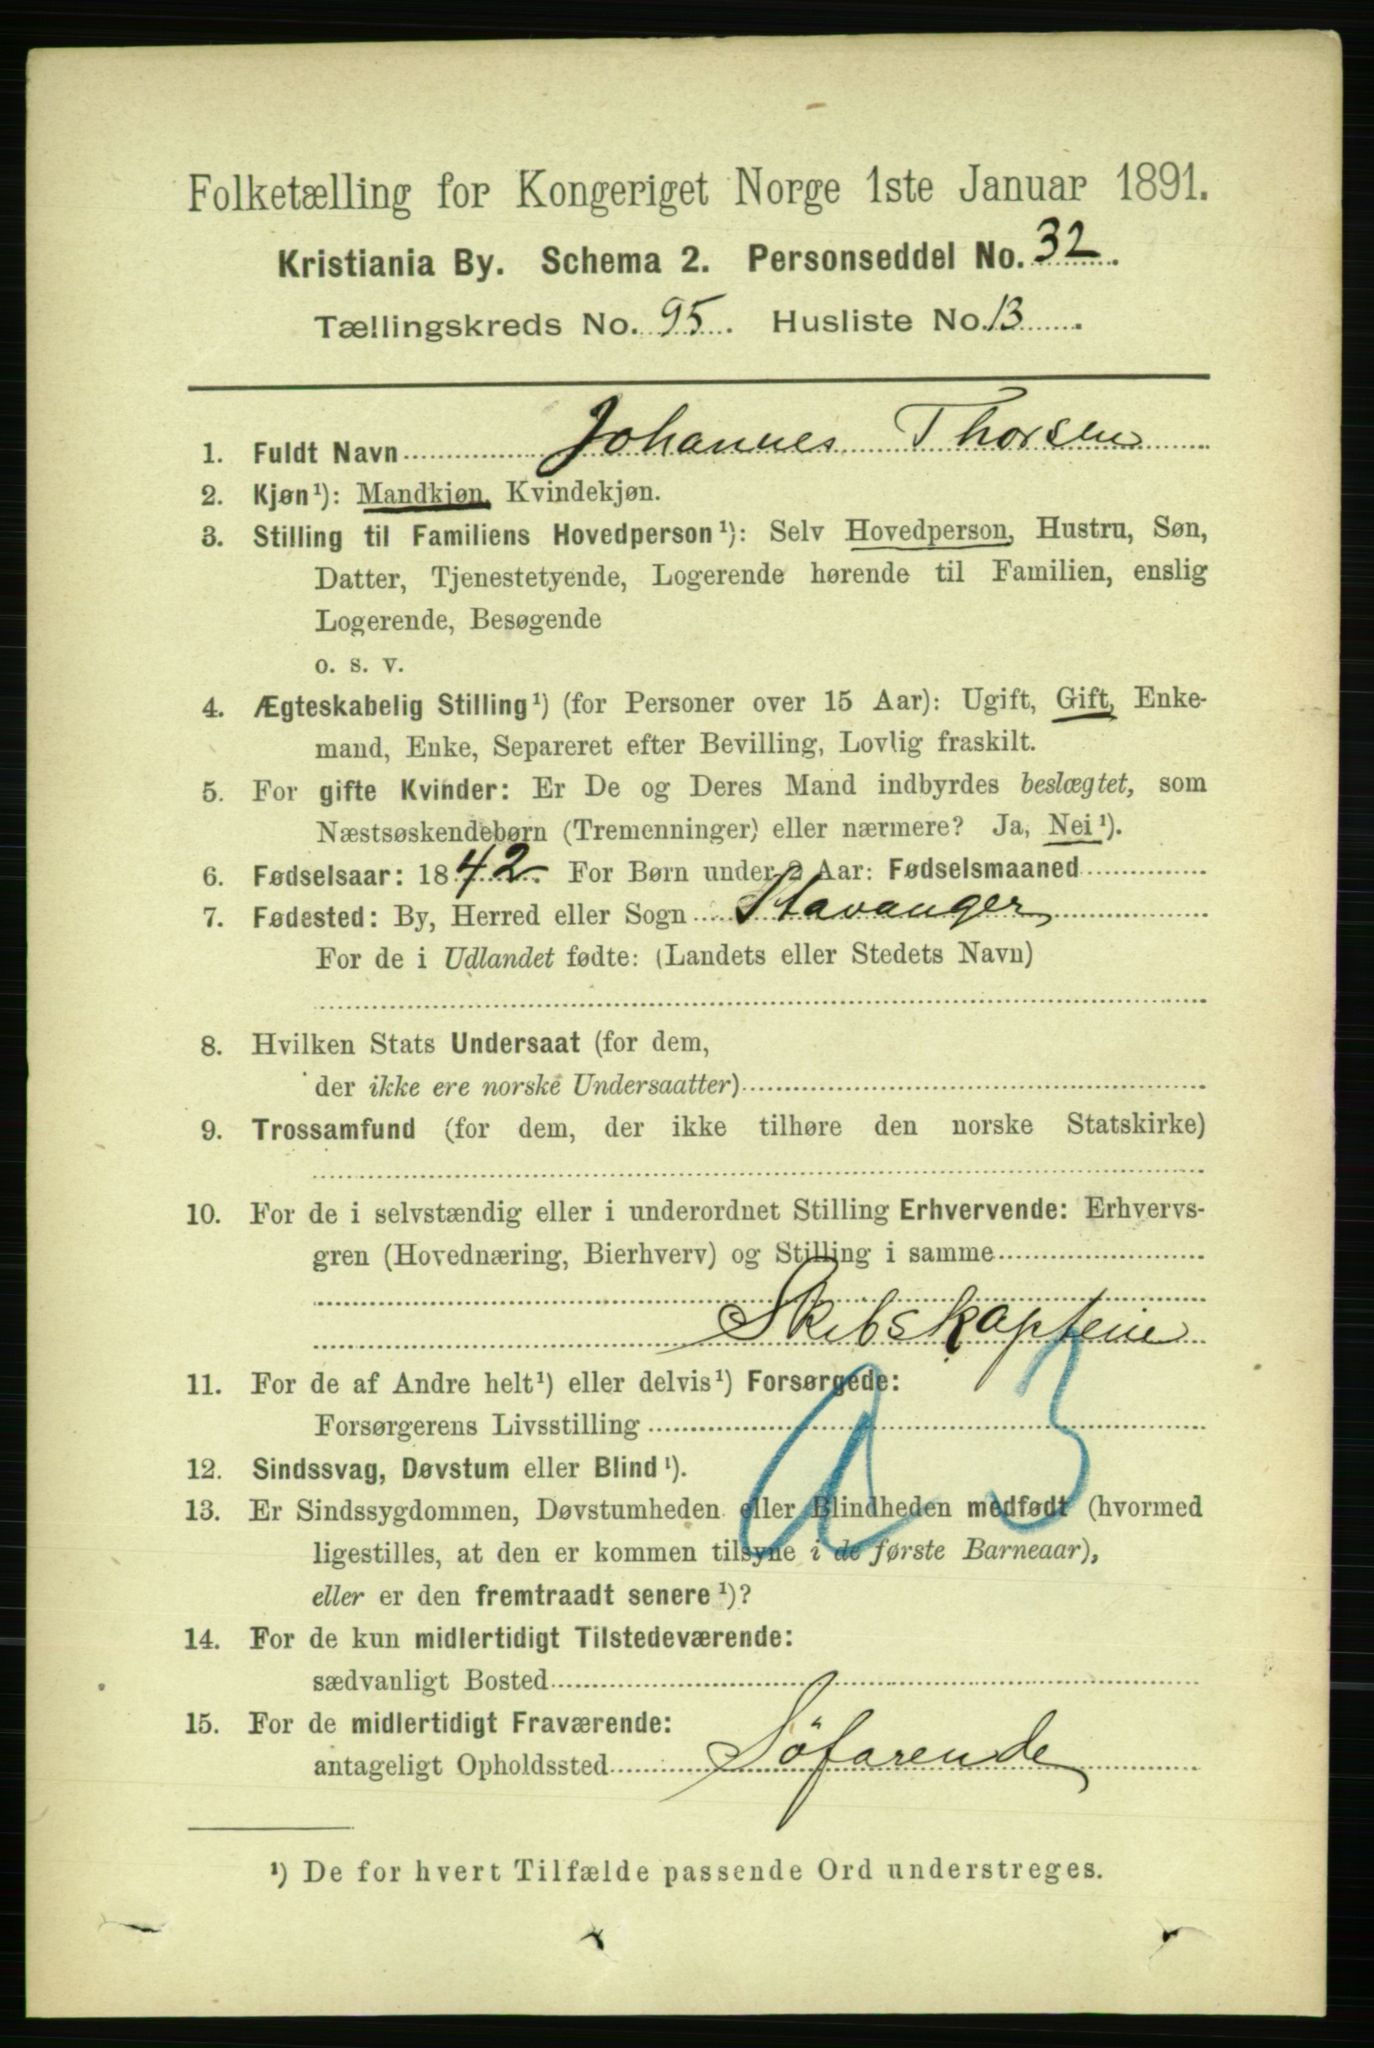 Folketælling for Kongeriget Norge 1ste Januar 1891.
Kristiania By. Schema 2. Personseddel No. 32.
Tællingskreds No. 95. Husliste No. 13.
1. Fuldt Navn Johannes Thorsen
2. Kjøn¹): Mandkjøn, Kvindekjøn.
3. Stilling til Familiens Hovedperson¹): Selv Hovedperson, Hustru, Søn,
Datter, Tjenestetyende, Logerende hørende til Familien, enslig
Logerende, Besøgende
o. s. v.
4. Ægteskabelig Stilling¹) (for Personer over 15 Aar): Ugift, Gift, Enke-
mand, Enke, Separeret efter Bevilling, Lovlig fraskilt.
5. For gifte Kvinder: Er De og Deres Mand indbyrdes beslægtet, som
Næstsøskendebørn (Tremenninger) eller nærmere? Ja, Nei¹).
6. Fødselsaar: 1842. For Børn under 2 Aar: Fødselsmaaned
7. Fødested: By, Herred eller Sogn Stavanger
For de i Udlandet fødte: (Landets eller Stedets Navn)
8. Hvilken Stats Undersaat (for dem,
der ikke ere norske Undersaatter)
9. Trossamfund (for dem, der ikke tilhøre den norske Statskirke)
10. For de i selvstændig eller i underordnet Stilling Erhvervende: Erhvervs-
gren (Hovednæring, Bierhverv) og Stilling i samme
Skibskaptein
11. For de af Andre helt¹) eller delvis¹) Forsørgede:
Forsørgerens Livsstilling
a 3
12. Sindssvag, Døvstum eller Blind¹).
13. Er Sindssygdommen, Døvstumheden eller Blindheden medfødt (hvormed
ligestilles, at den er kommen tilsyne i de første Barneaar),
eller er den fremtraadt senere¹)?
14. For de kun midlertidigt Tilstedeværende:
sædvanligt Bosted
15. For de midlertidigt Fraværende:
antageligt Opholdssted Söfarende
¹) De for hvert Tilfælde passende Ord understreges.